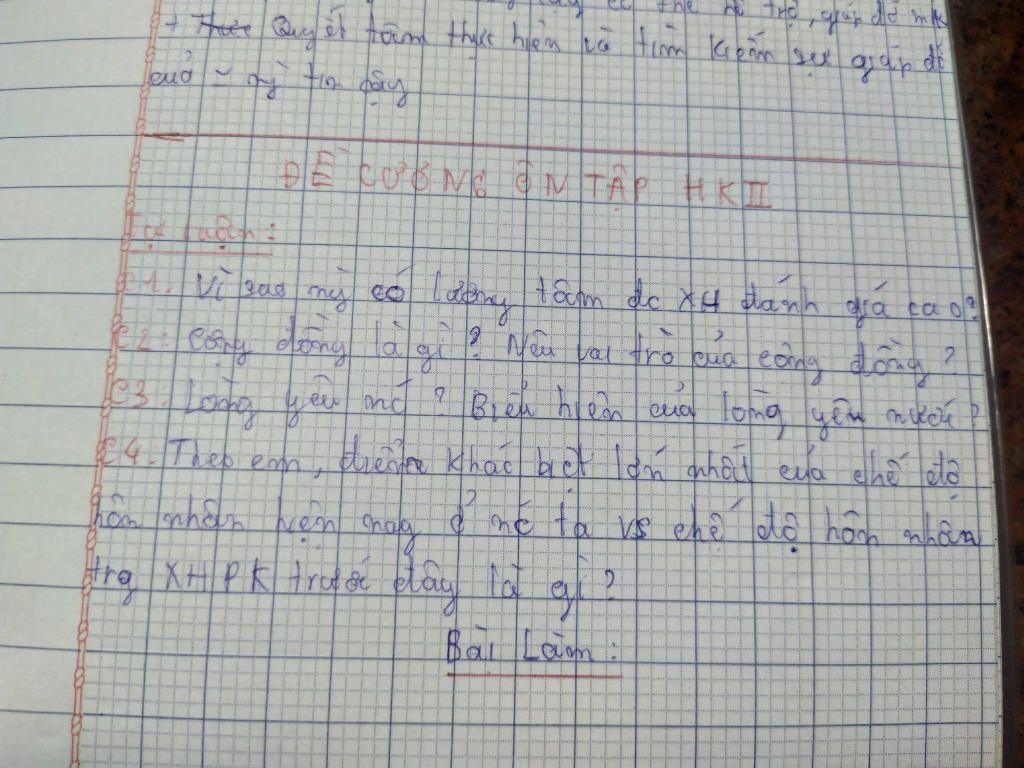 thể hỗ trợ, giúp đỡ mk
+ Quyết tâm thực hiện và tìm kiếm sự giúp đỡ
của ~ ng` tin cậy
ĐỀ CƯƠNG ÔN TẬP HKII
Tự luận:
C1: Vì sao ng` có lương tâm đc XH đánh giá cao?
C2: Cộng đồng là gì? Nêu vai trò của cộng đồng?
C3: Lòng yêu nc? Biểu hiện của lòng yêu nước?
C4: Theo em, điểm khác biệt lớn nhất của chế độ
hôn nhân hiện nay ở nc ta vs chế độ hôn nhân
trg XHPK trước đây là gì?
Bài Làm: